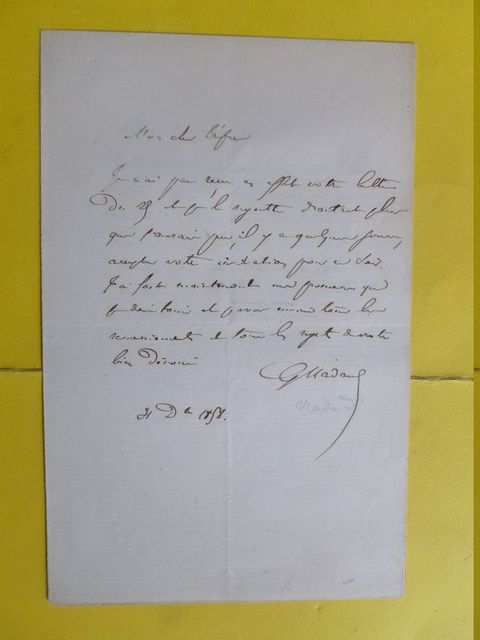 Mon cher
Je n'ai pas reçu en effet votre lettre
du 29 et je le regrette d'autant plus
que j'aurais pu, il y a quelques jours,
accepter votre invitation pour ce soir.
J'ai fait maintenant une promesse que
je dois tenir et
remerciements et tous les regrets de votre
bien dévoué
31 Dbre 1858.